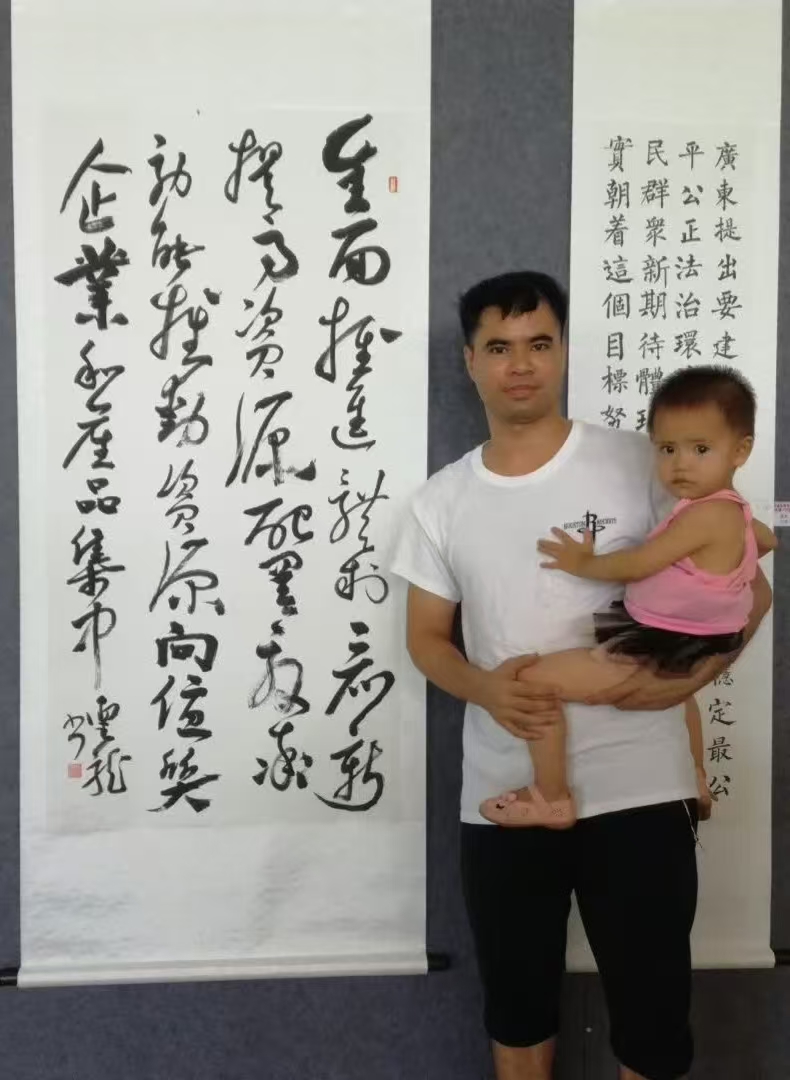 廣東提出要建定最公
平公正法治環
民群衆新期待體
實朝着這個目標努
全面推進體制創新
提高資源配置效率
効能推動資源向優質
企業和產品集中
雲龍
書